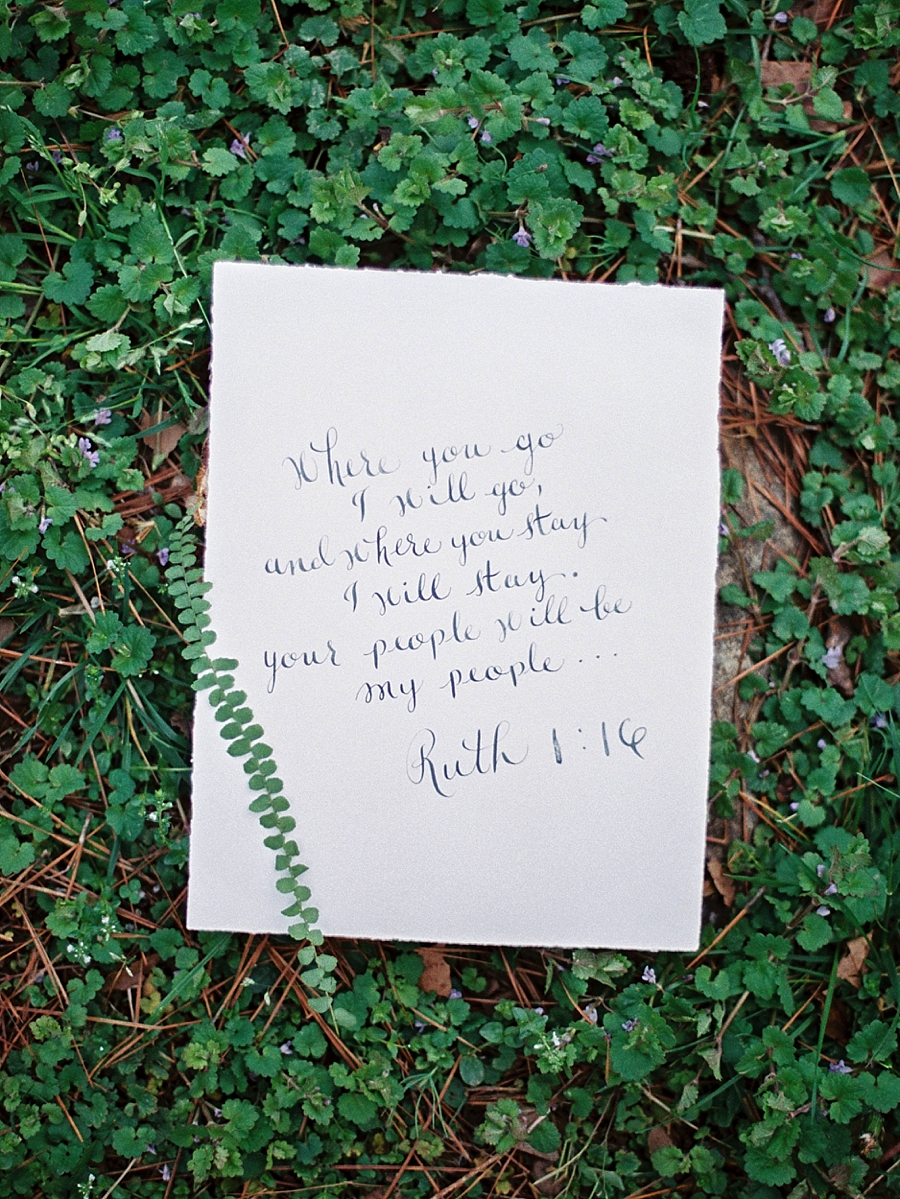 Where you go
I will go,
and where you stay
I will stay.
your people will be
my people ...
Ruth 1:16